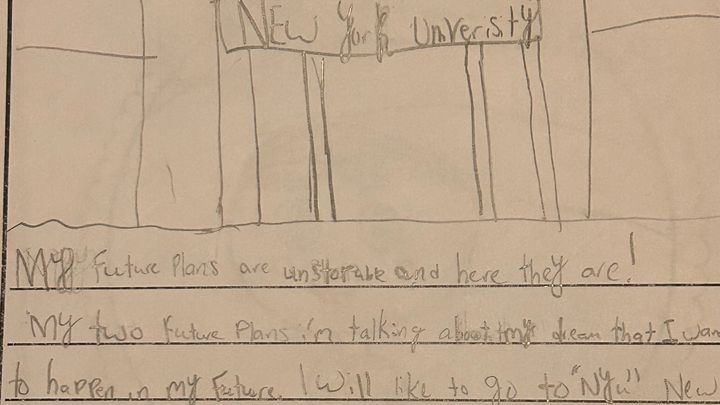 New York Univerisity
My future plans are and here they are!
My two future plans i'm talking about my dream that I wan
to happen in my future. I will like to go to "Nyu" New